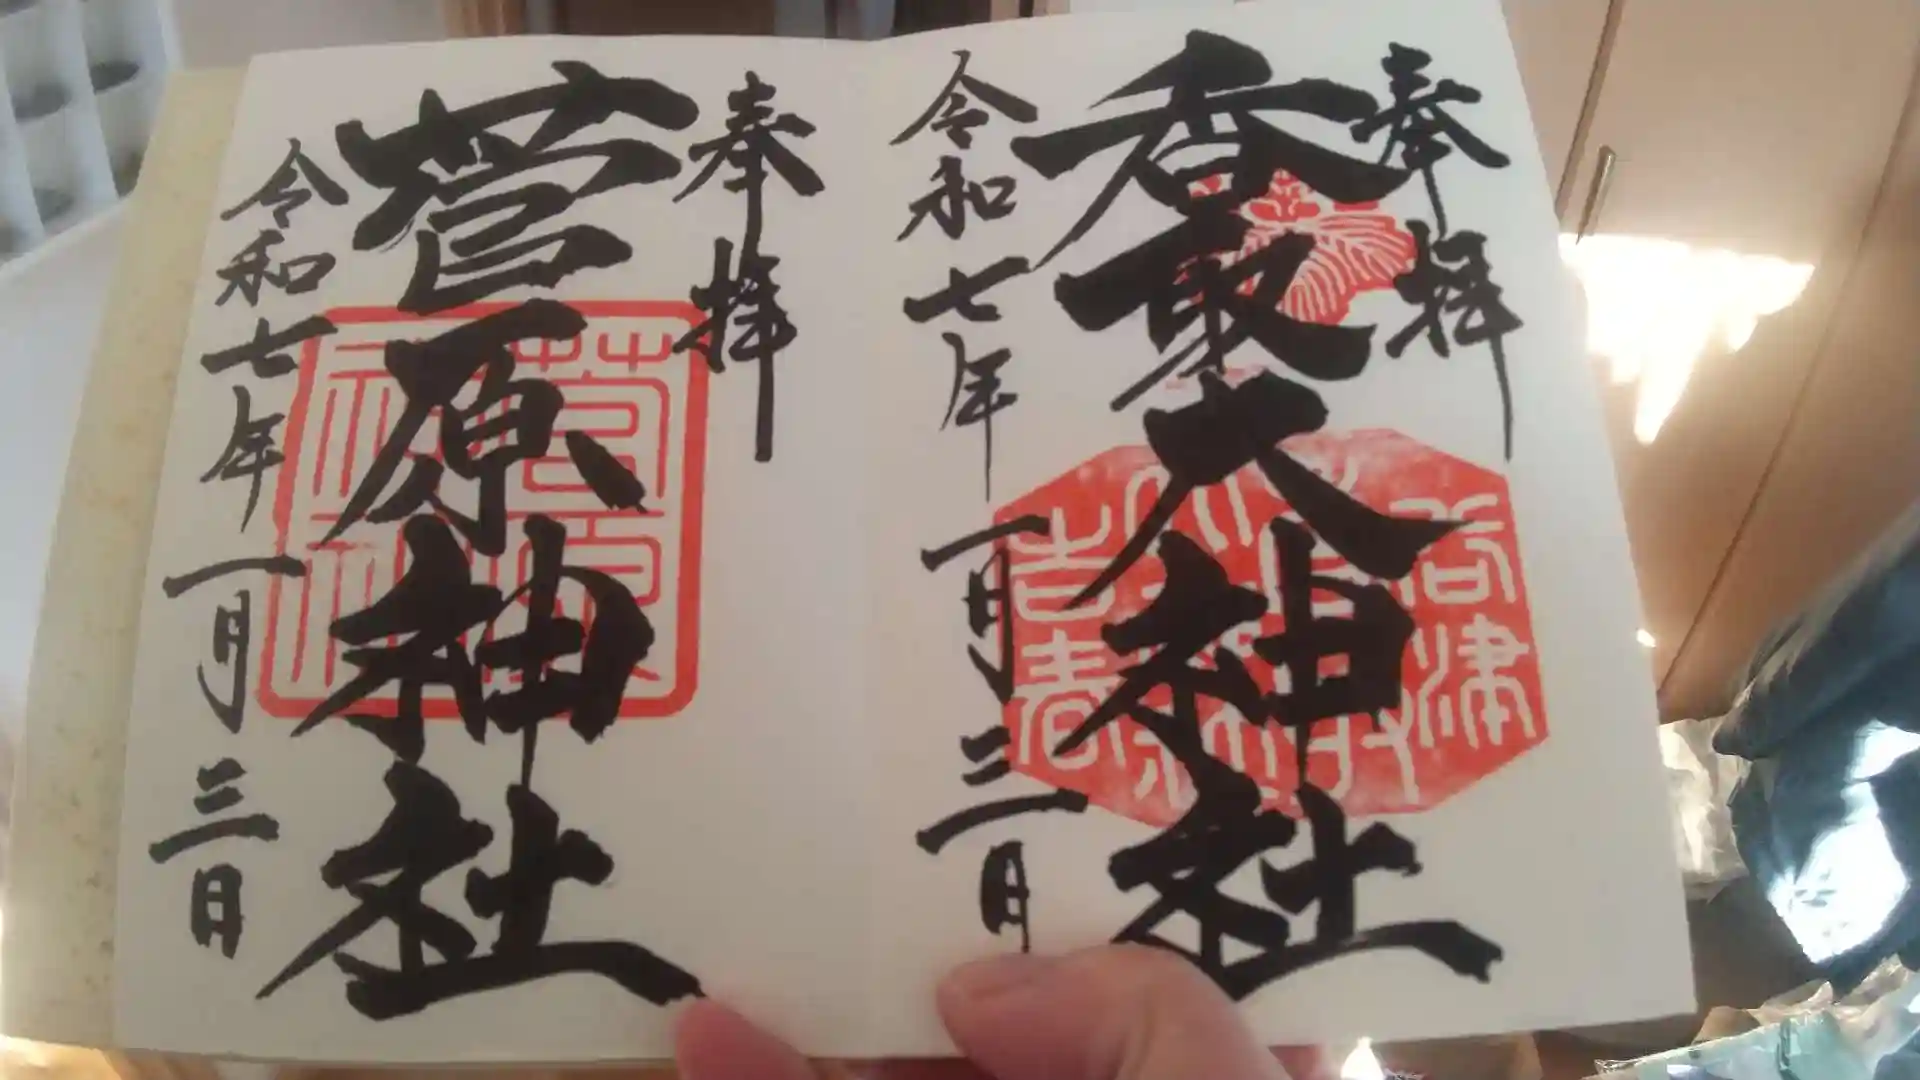 奉拝
香取大神社
令和七年一月三日
谷津
吉春
奉拝
菅原神社
令和七年一月三日